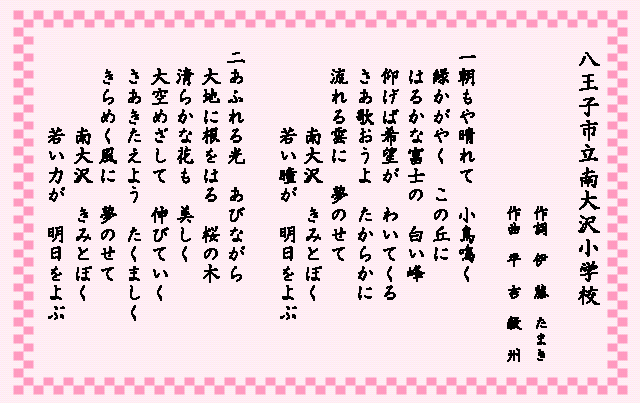 八王子市立南大沢小学校
作詞 伊藤 たまき
作曲 平吉 毅州
一 朝もや晴れて 小鳥鳴く
緑かがやく この丘に
はるかな富士の 白い峰
仰げば希望が わいてくる
さあ歌おうよ たからかに
流れる雲に 夢のせて
南大沢 きみとぼく
若い瞳が 明日をよぶ
二 あふれる光 あびながら
大地に根をはる 桜の木
清らかな花も 美しく
大空めざして 伸びていく
さあきたえよう たくましく
きらめく風に 夢のせて
南大沢 きみとぼく
若い力が 明日をよぶ